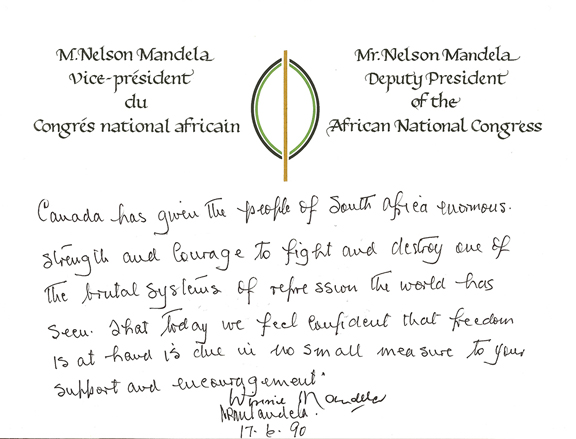 M. Nelson Mandela
Vice-président
du
Congrés national africain
Mr. Nelson Mandela
Deputy President
of the
African National Congress
Canada has given the people of South Africa enormous.
strength and courage to fight and destroy one of
the brutal systems of repression the world has
seen. That today we feel confident that freedom
is at hand is due in no small measure to your
support and encouragement"
Winnie Mandela
NRMandela.
17. 6. 90